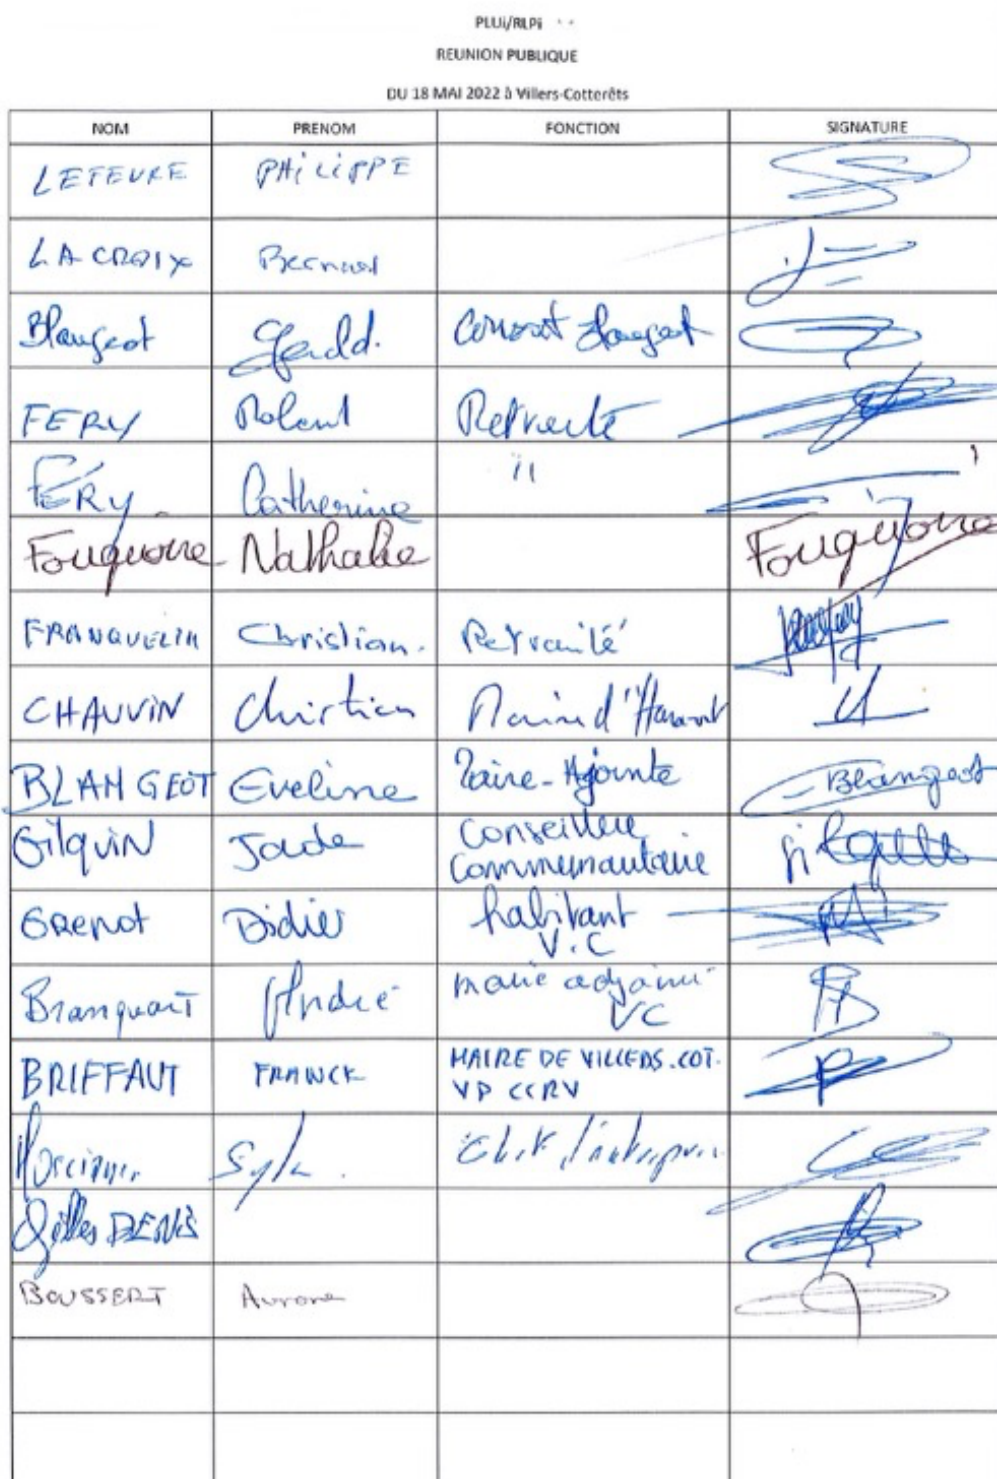 PLUi/RLPi
REUNION PUBLIQUE
DU 18 MAI 2022 à Villers-Cotterêts
NOM PRENOM FONCTION SIGNATURE
LEFEVRE PHiLiPPE
LACROIX Bernard
Blangeot Gérald.
FERY Roland Retraité
FÉRY Catherine "
Fouquoire Nathalie Fouquoire
FRANQUELIN Christian. Retraité
CHAUVIN Christian
BLANGEOT Eveline Maire-Ajointe Blangeot
Gilquin Jade Conseillère
Communautaire
Grenot Didier habitant
V.C
Branquart André
VC
BRIFFAUT FRANCK MAIRE DE VILLERS.COT.
VP CCRV
Gilles DENIS
BOUSSERT Aurore